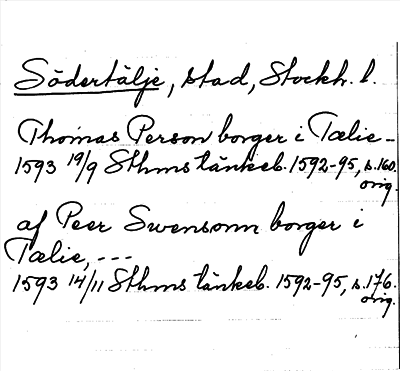 Södertälje, stad, Stockh. l.
Thomas Person borger i Tælie -
1593 19/9 Sthms tänkeb. 1592-95, s. 160.
orig.
af Peer Swensonn borger i
Tælie, ---
1593 14/11 Sthms tänkeb. 1592-95, s. 176.
orig.